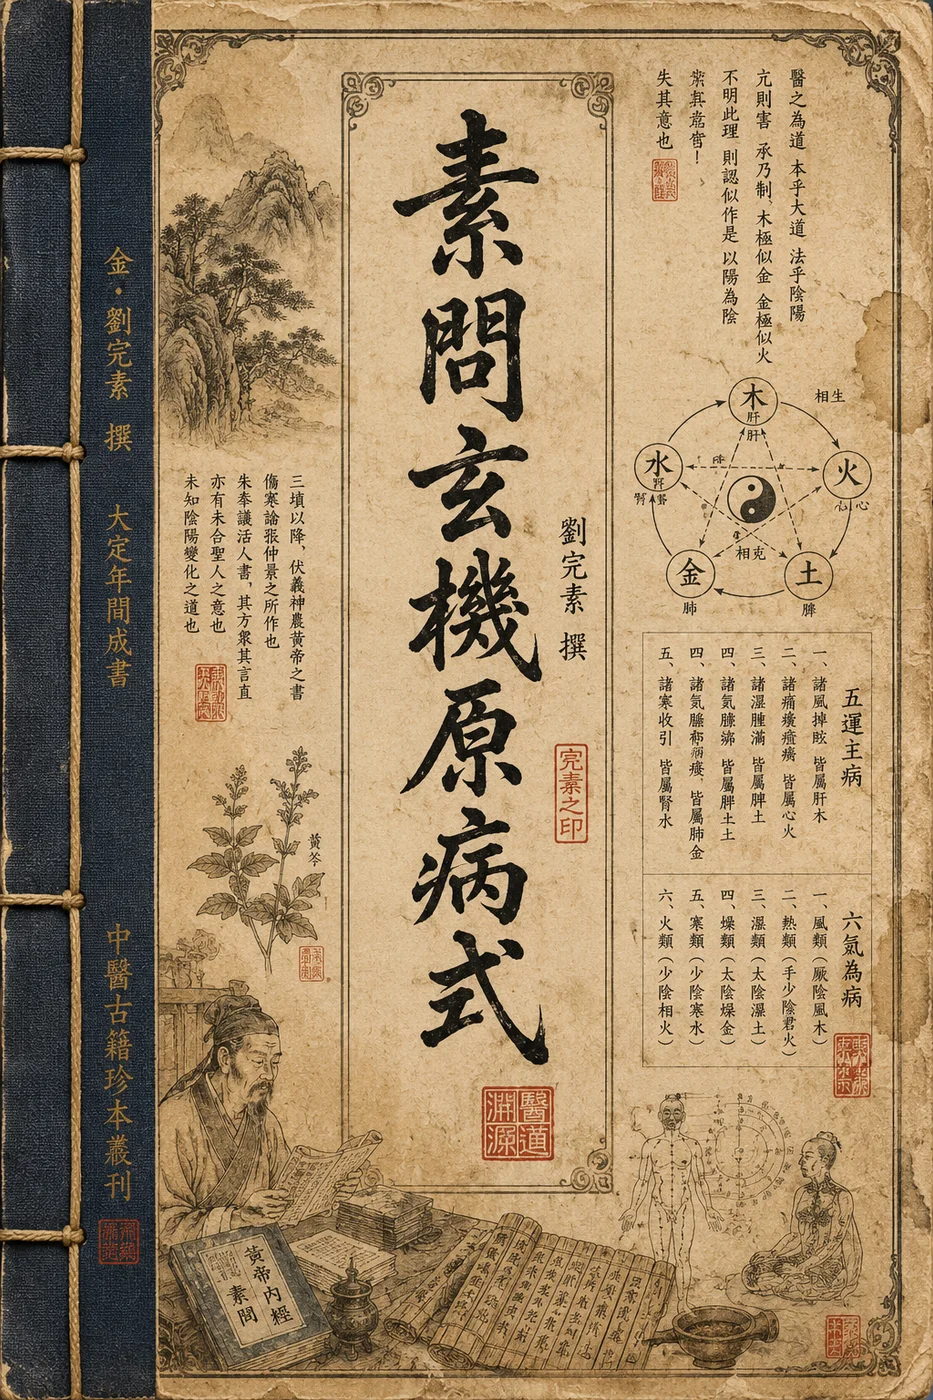 素問玄機原病式
劉完素 撰
完素之印
醫道
淵源
金・劉完素 撰 大定年間成書 中醫古籍珍本叢刊
醫之為道 本乎大道 法乎陰陽
亢則害 承乃制、木極似金 金極似火
不明此理 則認似作是 以陽為陰
失其意也
相生
木
肝
肝
火
心
心
土
脾
金
肺
水
腎
相克
三墳以降，伏義神農黃帝之書
傷寒論張仲景之所作也
朱奉議活人書，其方衆其言直
亦有未合聖人之意也
未知陰陽變化之道也
五運主病
一、諸風掉眩 皆屬肝木
二、諸痛瘡瘍 皆屬心火
三、諸濕腫滿 皆屬脾土
四、諸気 皆屬脾土土
四、諸気 皆屬肺金
五、諸寒收引 皆屬腎水
六氣為病
一、風類（厥陰風木）
二、熱類（手少陰君火）
三、濕類（太陰濕土）
四、燥類（太陰燥金）
五、寒類（少陰寒水）
六、火類（少陰相火）
黃芩
黃帝內經
素問